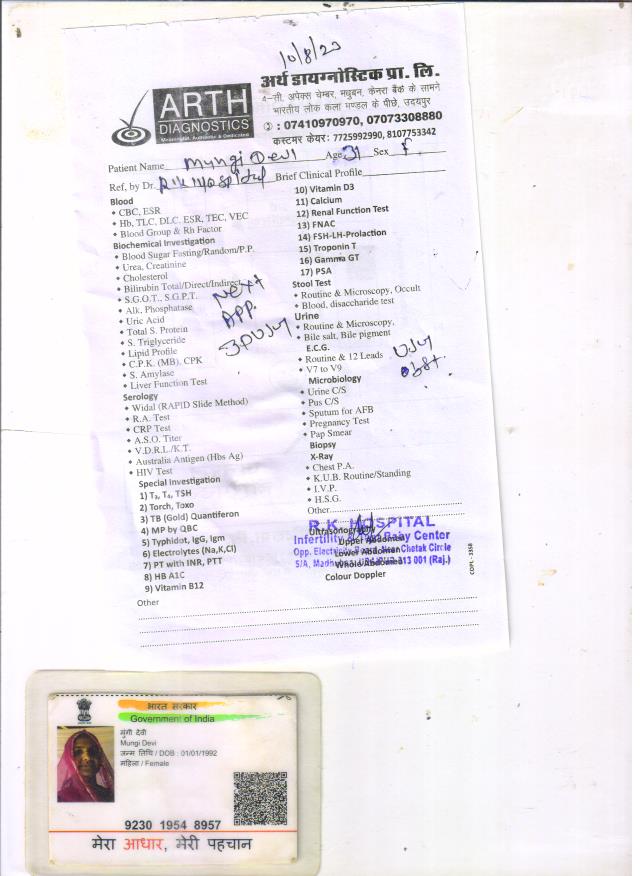 10/8/23
ARTH
DIAGNOSTICS
Meaningful, Authentic & Dedicated
अर्थ डायग्नोस्टिक प्रा. लि.
4-सी, अपेक्स चेम्बर, मधुबन, केनरा बैंक के सामने
भारतीय लोक कला मण्डल के पीछे, उदयपुर
: 07410970970, 07073308880
कस्टमर केयर: 7725992990, 8107753342
Patient Name Mungi Devi Age 31 Sex F
Ref, by Dr. R.K Hospital Brief Clinical Profile
Blood
CBC, ESR
Hb, TLC, DLC, ESR, TEC, VEC
Blood Group & Rh Factor
Biochemical Investigation
Blood Sugar Fasting/Random/P.P.
Urea, Creatinine
Cholesterol
Bilirubin Total/Direct/Indirect
S.G.O.T., S.G.P.T.
Alk, Phosphatase
Uric Acid
Total S. Protein
S. Triglyceride
Lipid Profile
C.P.K. (MB), CPK
S. Amylase
Liver Function Test
Serology
Widal (RAPID Slide Method)
R.A. Test
CRP Test
A.S.O. Titer
V.D.R.L./K.T.
Australia Antigen (Hbs Ag)
HIV Test
Special Investigation
1) T₃, T₄, TSH
2) Torch, Toxo
3) TB (Gold) Quantiferon
4) MP by QBC
5) Typhidot, IgG, Igm
6) Electrolytes (Na,K,Cl)
7) PT with INR, PTT
8) HB A1C
9) Vitamin B12
Other
10) Vitamin D3
11) Calcium
12) Renal Function Test
13) FNAC
14) FSH-LH-Prolaction
15) Troponin T
16) Gamma GT
17) PSA
Stool Test
Routine & Microscopy, Occult
Blood, disaccharide test
Urine
Routine & Microscopy,
Bile salt, Bile pigment
E.C.G.
Routine & 12 Leads
V7 to V9
Microbiology
Urine C/S
Pus C/S
Sputum for AFB
Pregnancy Test
Pap Smear
Biopsy
X-Ray
Chest P.A.
K.U.B. Routine/Standing
I.V.P.
H.S.G.
Other
Ultrasonography
Upper Abdomen
Lower Abdomen
Whole Abdomen
Colour Doppler
Next
APP.
obst.
R.K. HOSPITAL
Infertility & Baby Center
Opp. Electricity Board, Near Chetak Circle
5/A, 313 001 (Raj.)
COPL - 3358
भारत सरकार
Government of India
मुंगी देवी
Mungi Devi
जन्म तिथि / DOB : 01/01/1992
महिला / Female
9230 1954 8957
मेरा आधार, मेरी पहचान